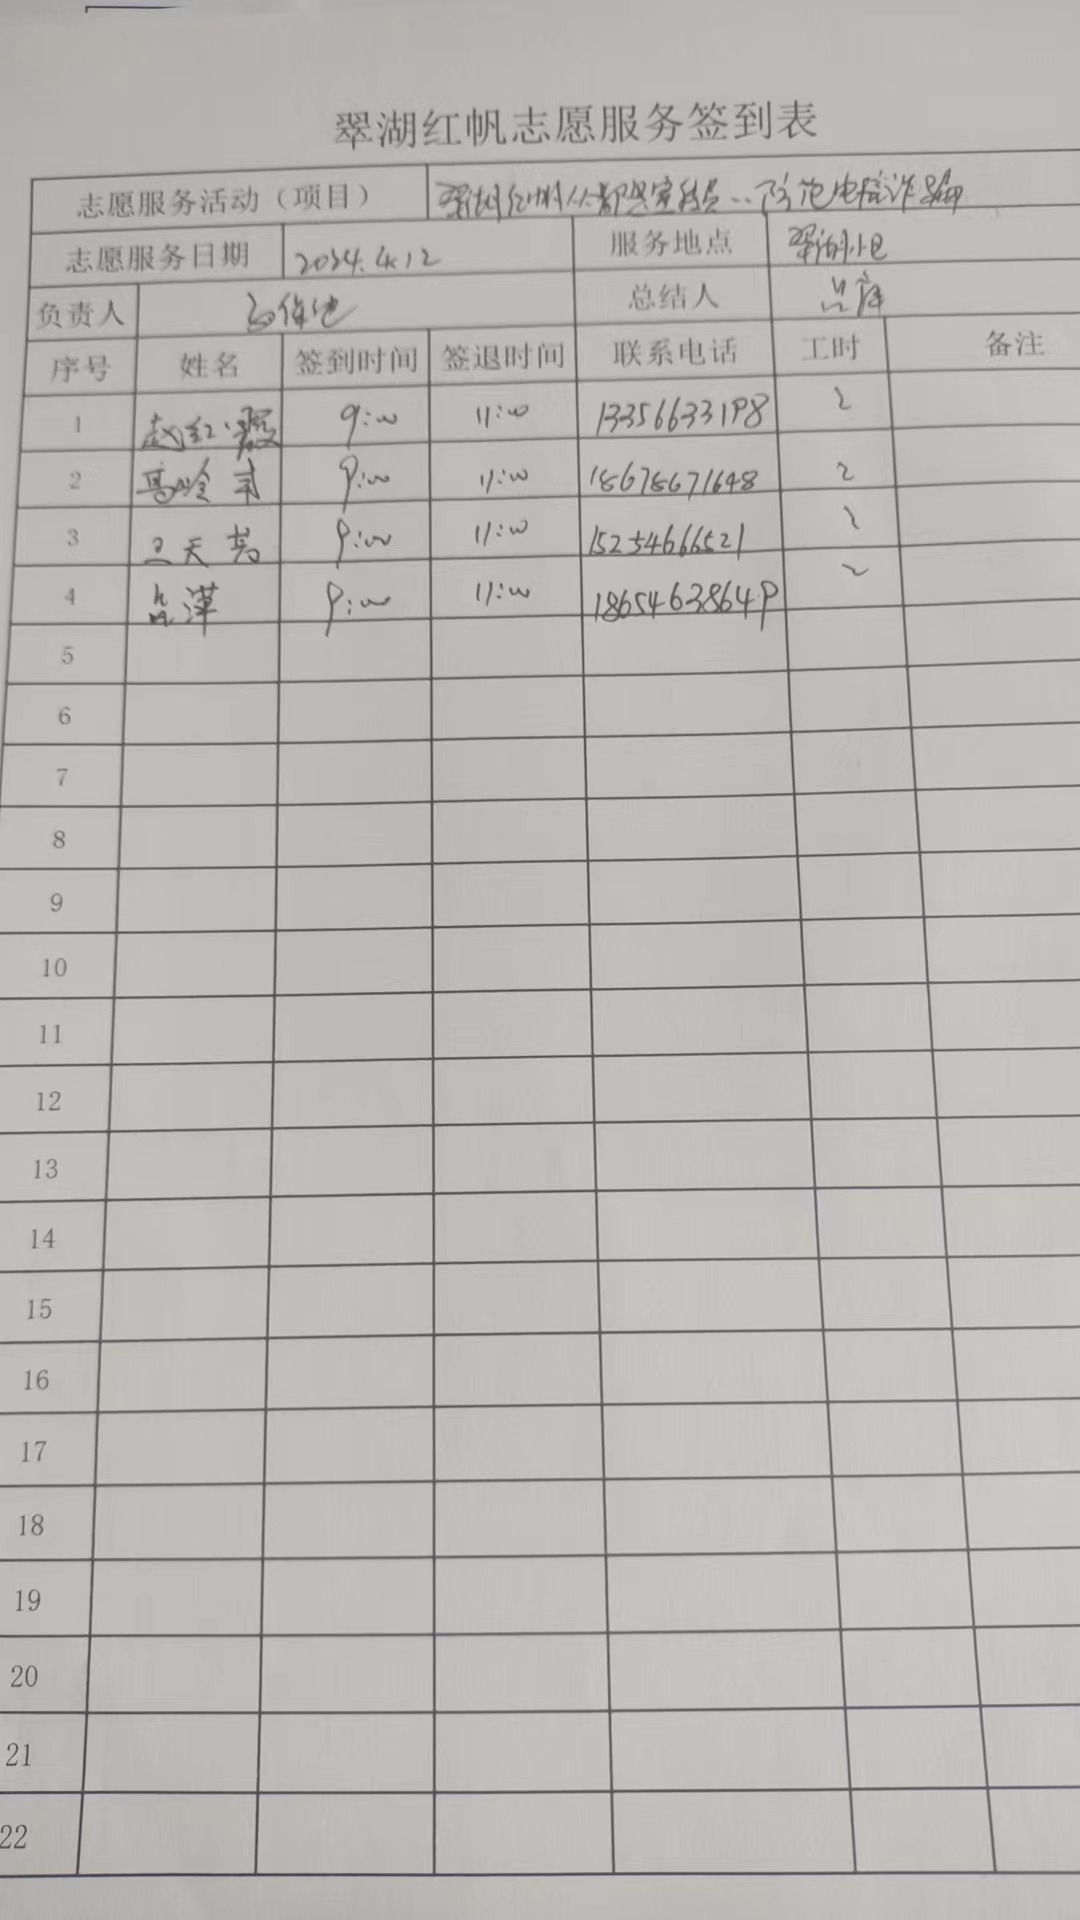 翠湖红帆志愿服务签到表
志愿服务活动（项目） 翠湖红帆人都是宣传员..防范电信诈骗
志愿服务日期 2024.4.12 服务地点 翠湖小区
负责人 总结人
序号 姓名 签到时间 签退时间 联系电话 工时 备注
1 赵红霞 9:00 11:00 13356633198 2
2 9:00 11:00 18678671648 2
3 王天亮 9:00 11:00 15254666521 2
4 吕萍 9:00 11:00 18654638649 2
5
6
7
8
9
10
11
12
13
14
15
16
17
18
19
20
21
22